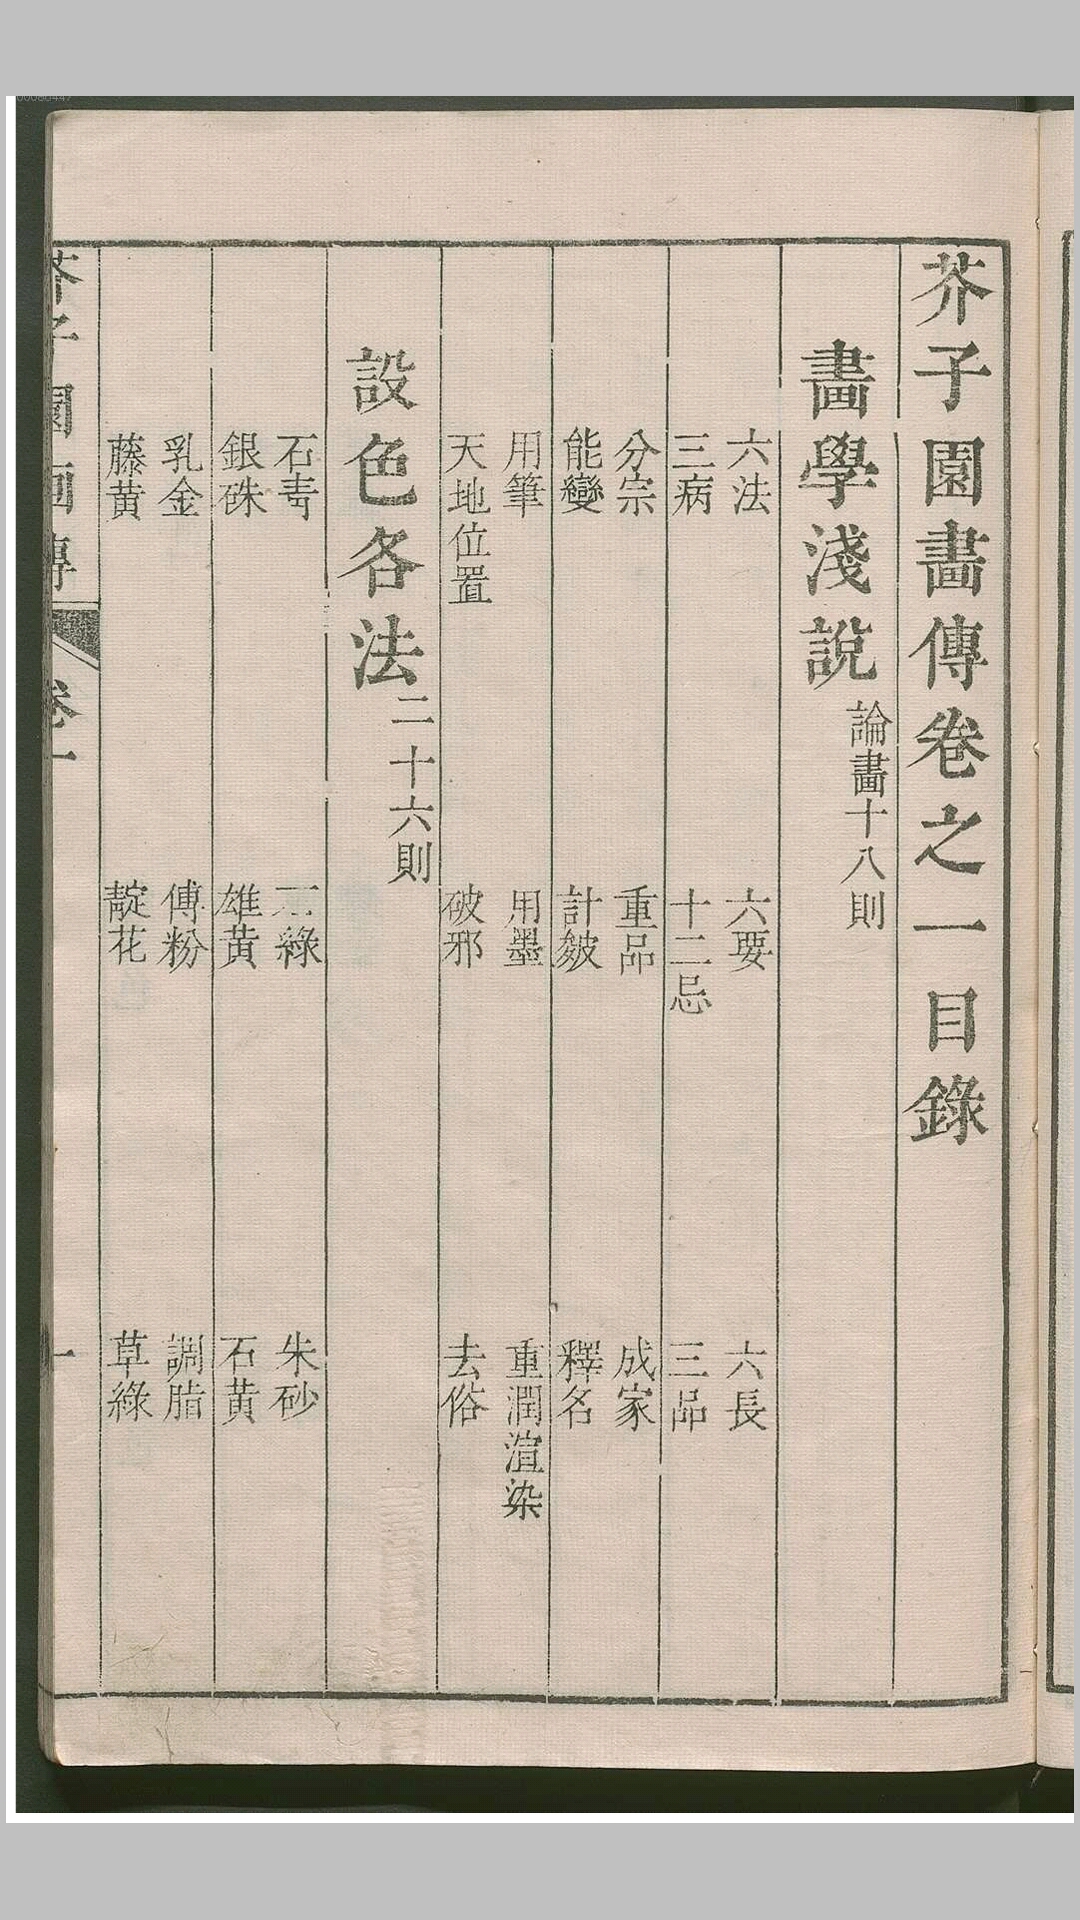 芥子園畫傳卷之一目錄
畫學淺說 論畫十八則
六法 六要 六長
三病 十二忌 三品
分宗 重品 成家
能變 計皴 釋名
用筆 用墨 重潤渲染
天地位置 破邪 去俗
設色各法 二十六則
石青 石綠 朱砂
銀硃 雄黃 石黃
乳金 傅粉 調脂
藤黃 靛花 草綠
芥子園畫傳 卷一 一